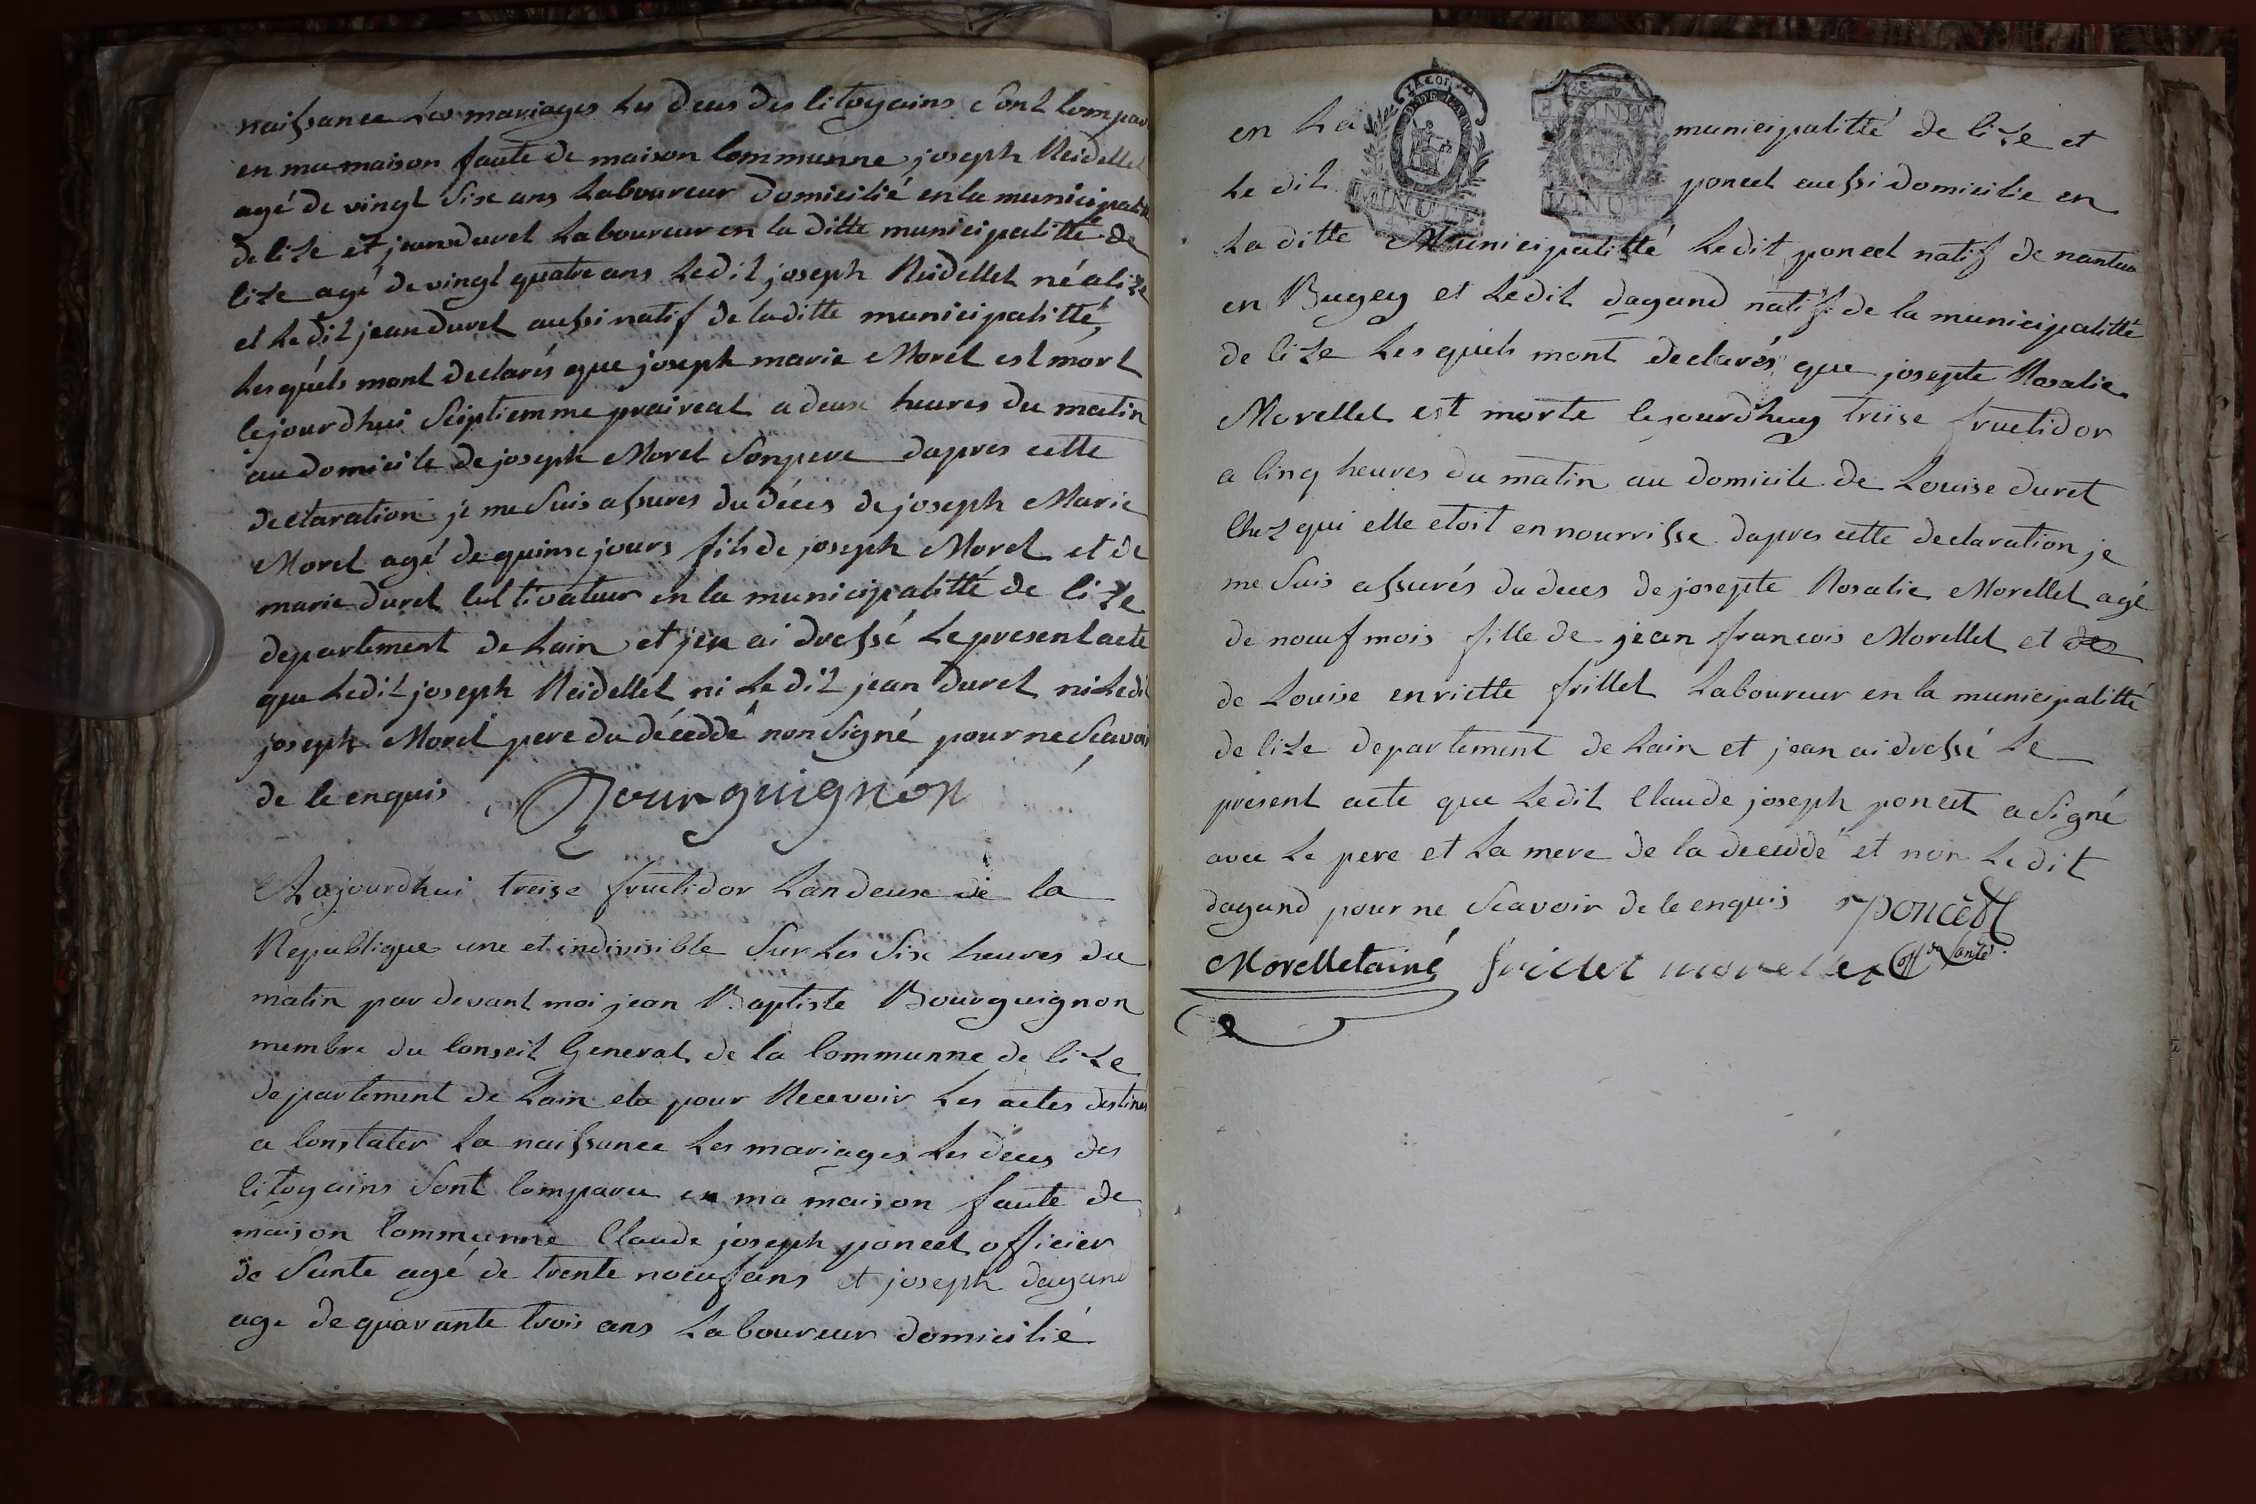 naissance Les mariages Les deces des Citoyains Sont Compar
en ma maison faute de maison Communne joseph Reidellet
agé de vingt Six ans Laboureur domicilié en la municipalitté
de Cize et jean duret Laboureur en la ditte municipalitté de
Cize agé de vingt quatre ans Ledit joseph Reidellet né a Cize
et Ledit jean duret aussi natif de laditte municipalitté
Lesquels mont declarés que joseph marie Morel est mort
Cejourdhui Sciptiemme praireal a deux heures du matin
au domicile de joseph Morel Son pere dapres cette
declaration je me Suis assures du déces de joseph Marie
Morel agé de quinse jours fils de joseph Morel et de
marie duret Cultivateur en la municipalitté de Cize
departement de Lain et jen ai dressé Le present acte
que Ledit joseph Reidellet ni Le dit jean duret ni Ledi
joseph Morel pere du déceddé non Signé pour ne Scavoir
de ce enquis Bourguignon
Aujourdhui treise fructidor Lan deuse de la
Republique une et indivisible Sur Les Six heures du
matin par devant moi jean Baptiste Bourguignon
membre du Conseil General de la Communne de Cize
departement de Lain elu pour Recevoir Les actes destines
a Constater La naissance Les mariages Les deces des
Citoyains Sont Comparu en ma maison faute de
maison Communne Claude joseph poncet officier
de Sante agé de trente noeuf ans et joseph dagand
age de quarante trois ans Laboureur domicilié
en La municipalitté de Cize et
Le dit poncet aussi domicilie en
La ditte Municipalitté Ledit poncet natif de nantua
en Bugey et Ledit dagand natif de la municipalitté
de Cize Lesquels mont declarés que josepte Rosalie
Morellet est morte Cejourdhuy treise fructidor
a Cinq heures du matin au domicile de Louise duret
Chez qui elle etoit en nourrisse dapres cette declaration je
me Suis assurés du deces de josepte Rosalie Morellet agé
de noeuf mois fille de jean francois Morellet et de
de Louise enriette frillet Laboureur en la municipalitté
de Cize departement de Lain et jean ai dressé Le
present acte que Ledit Claude joseph poncet a Signé
avec Le pere et La mere de la deceddé et non Le dit
dagand pour ne Scavoir de ce enquis poncett
off de Santé
Morelletainé frillet morellet